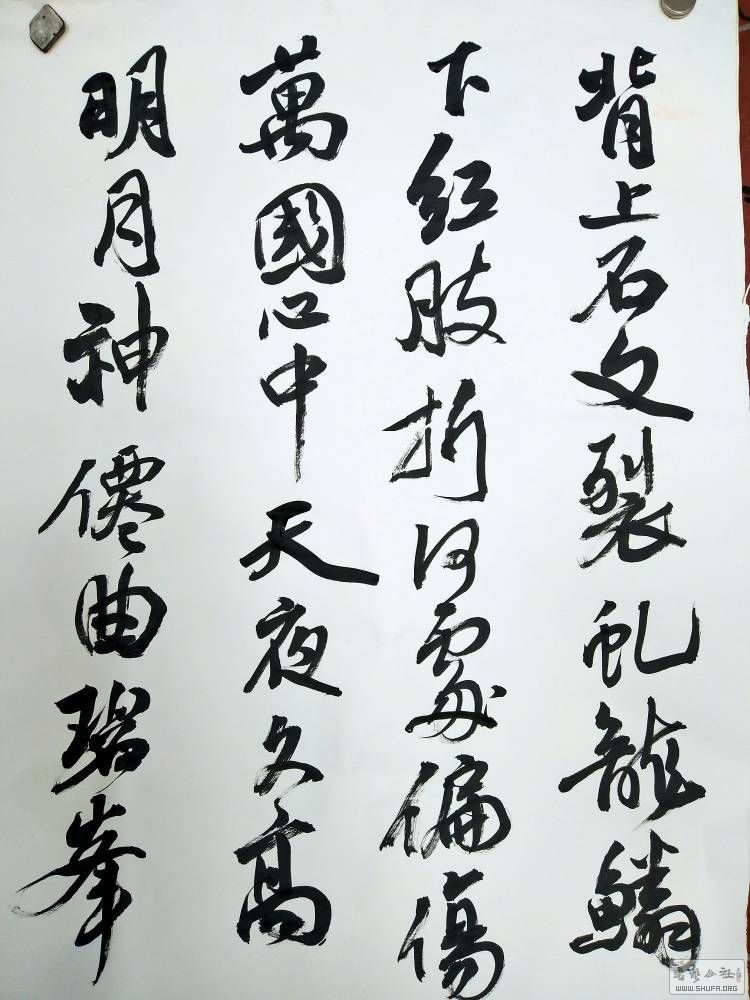 背上石文裂乱龍鱗
下红肢折何處偏傷
萬國心中天夜久高
明月神僊曲碧峯
書藝公社
WWW.SHUFA.ORG